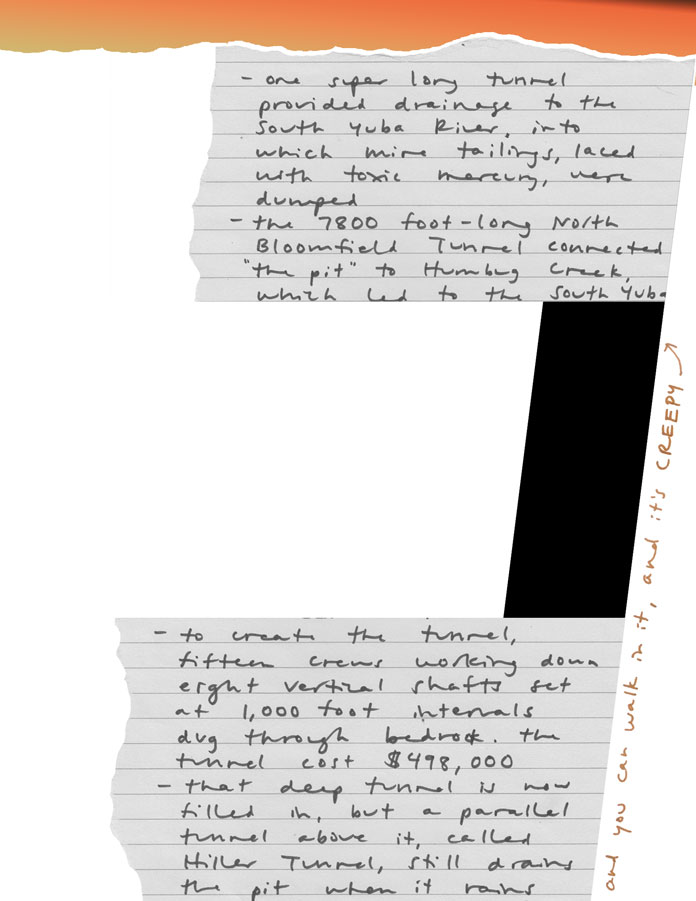 - one super long tunnel
provided drainage to the
South Yuba River, into
which mine tailings, laced
with toxic mercury, were
dumped
- the 7800 foot-long North
Bloomfield Tunnel connected
"the pit" to Humbug Creek,
which led to the South Yuba
- to create the tunnel,
fifteen crews working down
eight vertical shafts set
at 1,000 foot intervals
dug through bedrock. the
tunnel cost $498,000
- that deep tunnel is now
filled in, but a parallel
tunnel above it, called
Hiller Tunnel, still drains
the pit when it rains
and you can walk in it, and it's CREEPY →